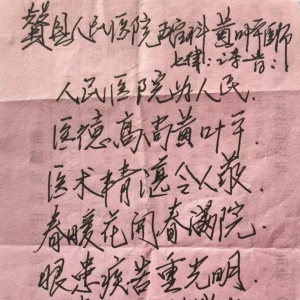 赣县人民医院五官科黄叶平医师
诗一首:
人民医院为人民.
医德高尚黄叶平
医术精湛令人敬.
春暖花开春满院.
眼患疾苦重光明.